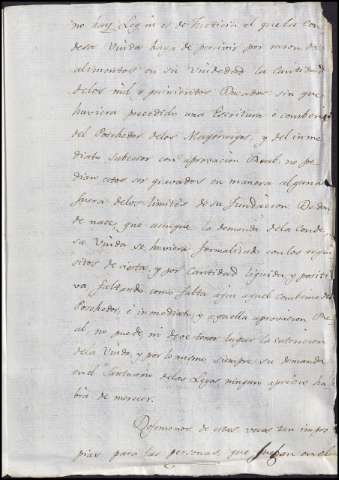 no hay Ley ni es de Justicia el que la Con-
desa Viuda haya de percivir por razon de
alimentos en su Viudedad la cantidad
de los mil y quinientos Ducados sin que
huviera precedido una Escritura o combenio
del Posehedor de los Mayorazgos, y del inme-
diato subcesor con aprovacion Real: no po-
dian estos ser gravados en manera alguna
fuera de los limites de su fundacion. De don-
de nace, que aunque la demanda de la Conde-
sa Viuda se huviera formalizado con los requi-
sitos de cierta, y por cantidad liquida, y positi-
va, faltando como falta aquel combenio del
Posehedor, e inmediato, y aquella aprovacion Re-
al, no puede, ni deve tener lugar la intencion
de la Viuda, y por lo mismo siempre su demanda
en el Santuario de las Leyes ningun aprecio ha-
bra de merecer.
Dejemonos de estas voces tan impro-
pias para las personas, que juegan en el